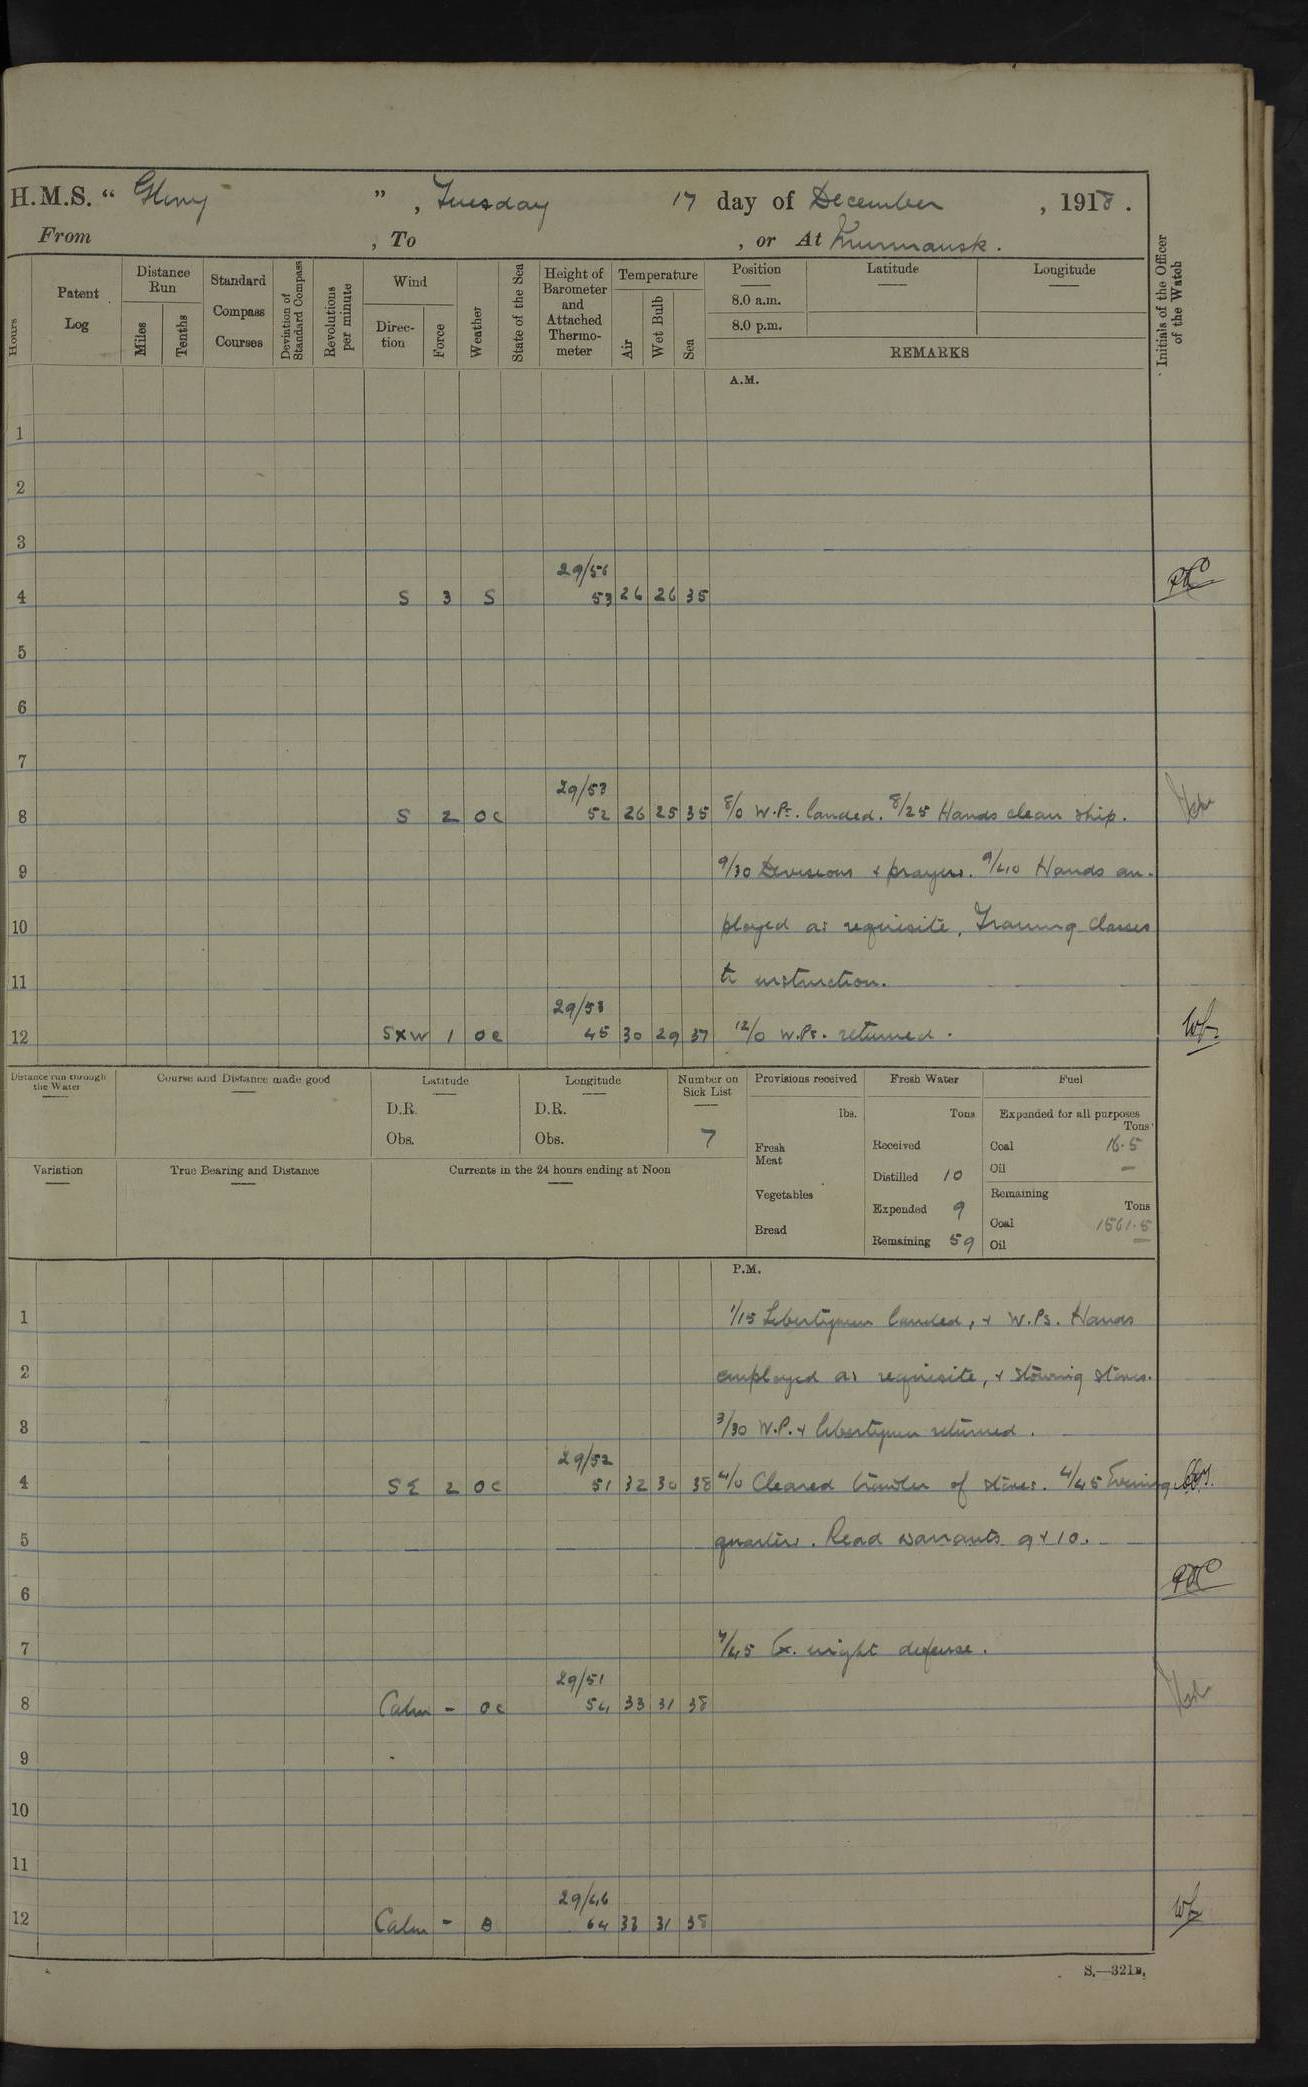 H.M.S. “ Glory ” , Tuesday 17 day of December , 1918 .
From , To , or At Murmansk .
Hours
Patent Log
Distance Run
Miles
Tenths
Standard Compass Courses
Deviation of Standard Compass
Revolutions per minute
Wind
Direc-tion
Force
Weather
State of the Sea
Height of Barometer and Attached Thermo-meter
Temperature
Air
Wet Bulb
Sea
Position
8.0 a.m.
8.0 p.m.
Latitude
Longitude
REMARKS
Initials of the Officer of the Watch
A.M.
1
2
3
29/56
4 S 3 S 53 26 26 35
5
6
7
29/53
8 S 2 OC 52 26 25 35 8/0 W.Ps. landed. 8/25 Hands clean ship.
9 9/30 Divisions & prayers. 9/40 Hands em-
10 ployed as requisite, Training Classes
11 to instruction.
29/53
12 SXW 1 OC 45 30 29 37 12/0 W.Ps. returned .
Distance run through the Water
Course and Distance made good
Latitude
D.R.
Obs.
Longitude
D.R.
Obs.
Number on Sick List
7
Provisions received
lbs.
Fresh Meat
Vegetables
Bread
Fresh Water
Tons
Received
Distilled 10
Expended 9
Remaining 59
Fuel
Expended for all purposes
Tons
Coal 16.5
Oil —
Remaining
Tons
Coal 1561.5
Oil —
Variation
True Bearing and Distance
Currents in the 24 hours ending at Noon
P.M.
1 1/15 Libertymen landed, & W.Ps. Hands
2 employed as requisite, & stowing stores.
3 3/30 W.P. & libertymen returned .
29/52
4 SE 2 OC 51 32 30 38 4/0 Cleared trawler of stores. 4/45 Evening
5 quarters. Read warrants 9 & 10.
6
7 7/45 Ex. night defense .
29/51
8 Calm - OC 54 33 31 38
9
10
11
29/46
12 Calm - B 64 33 31 38
S.—321B.